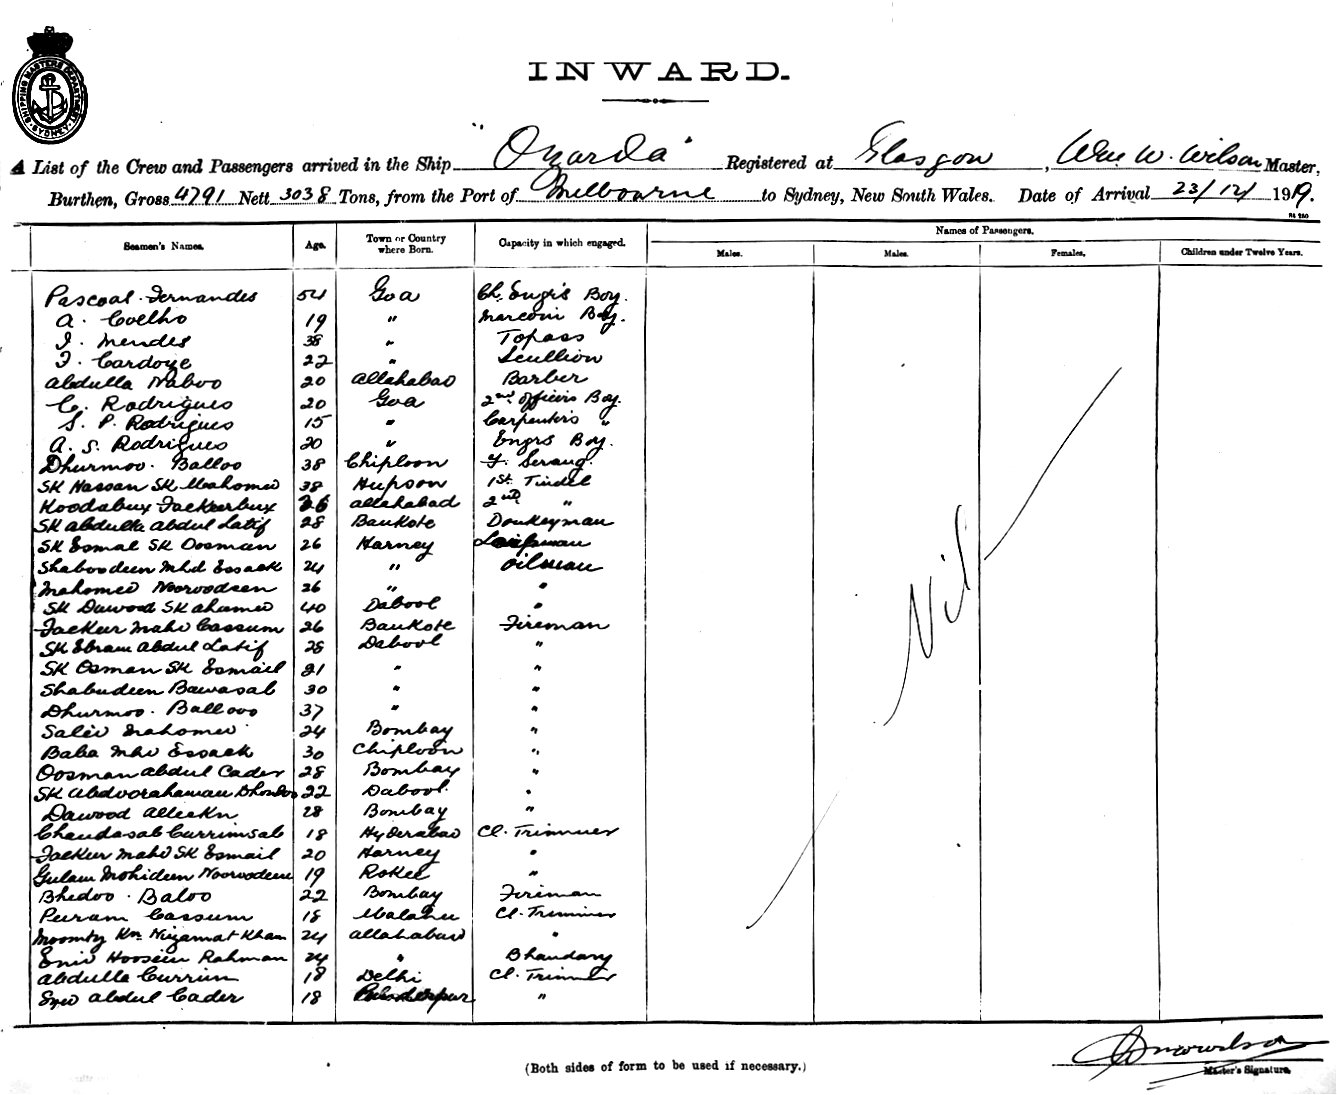 SHIPPING MASTERS DEPARTMENT SYDNEY
INWARD.
A List of the Crew and Passengers arrived in the Ship "Ozarda" Registered at Glasgow, Wm W. Wilson Master,
Burthen, Gross 4791 Nett 3038 Tons, from the Port of Melbourne to Sydney, New South Wales. Date of Arrival 23/12/ 1919.
Names of Passengers.
Seamen's Names. Age. Town or Country where Born. Capacity in which engaged. Males. Males. Females. Children under Twelve Years.
Pascoal Fernandes 54 Goa Ch. Engr's Boy.
A. Coelho 19 " Marconi Boy.
I. Mendes 38 " Topass
F. Cardoze 22 " Scullion
Abdulla Naboo 20 Allahabad Barber
C. Rodrigues 20 Goa 2nd Officers Boy.
S. P. Rodrigues 15 " Carpenters "
A. S. Rodrigues 20 " Engrs Boy.
Dhurmoo Balloo 38 Chiploon F. Serang.
SK Hassan SK Mahomed 38 Hupson 1st Tindel
Koodabux Fackeerbux 26 Allahabad 2nd "
SK Abdulla Abdul Latif 28 Baukote Donkeyman
SK Esmal SK Oosman 26 Harney
Shaboodeen Mhd Essack 24 " Oilman
Mahomed Nooroodeen 26 " "
SK Dawood SK Ahamed 40 Dabool "
Fackeer Mahd Cassum 26 Baukote Fireman
SK Ebram Abdul Latif 28 Dabool "
SK Osman SK Esmail 21 " "
Shabudeen Bawasab 30 " "
Dhurmoo Balloo 37 " "
Saleo Mahomed 24 Bombay "
Baba Mhd Essack 30 Chiploon "
Oosman Abdul Cader 28 Bombay "
SK Abdoorahaman Dhondoo 22 Dabool "
Dawood Alleekn 28 Bombay "
Chandasab Currimsab 18 Hyderabad Cl. Trimmer
Fackeer Mahd SK Esmail 20 Harney "
Gulam Mohideen Nooroodeen 19 Rokel "
Bhedoo Baloo 22 Bombay Fireman
Peeram Cassum 18 Cl. Trimmer
Kn. Niyamat Khan 24 Allahabad "
Hoosein Rahman 24 " Bhandary
Abdulla Currim 18 Delhi Cl. Trimmer
Syed Abdul Cader 18 "
Nil
(Both sides of form to be used if necessary.)
Wm W Wilson
Master's Signature.